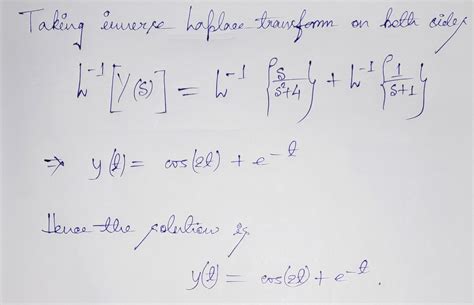 Taking inverse Laplace transform on both sides
L⁻¹[Y(s)] = L⁻¹{s/(s²+4)} + L⁻¹{1/(s+1)}
⇒ y(t) = cos(2t) + e^{-t}
Hence the solution is
y(t) = cos(2t) + e^{-t}.